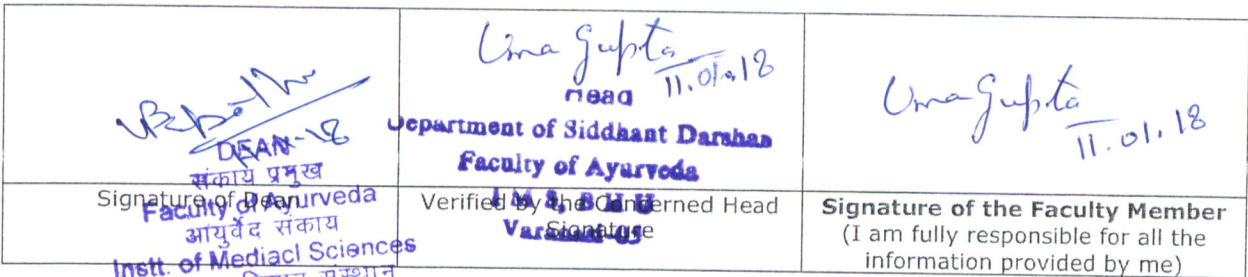 DEAN
संकाय प्रमुख
Signature of Dean
Faculty of Ayurveda
आयुर्वेद संकाय
Instt. of Mediacl Sciences
संस्थान
Uma Gupta
11.01.18
Head
Department of Siddhant Darshan
Faculty of Ayurveda
I M S, B H U
Verified by the Concerned Head
Varanasi-05
Signature
Uma Gupta
11.01.18
Signature of the Faculty Member
(I am fully responsible for all the
information provided by me)